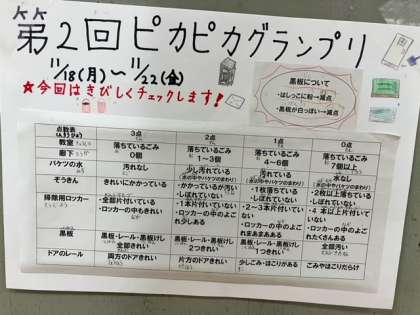 第2回ピカピカグランプリ
11/18(月)〜11/22(金)
★今回はきびしくチェックします!
黒板について
・はしっこに粉→減点
・黒板が白っぽい→減点
点数表 3点 2点 1点 0点
教室 廊下 落ちているごみ 0個 落ちているごみ 1〜3個 落ちているごみ 4〜6個 落ちているごみ 7個以上
バケツの水 汚れなし 少し汚れている (水の中やバケツのまわり) 汚れている (水の中やバケツのまわり) 水なし (水の中やバケツのまわり)
ぞうきん きれいにかかっている ・かかっているが汚い ・しぼれていない ・1枚落ちている ・しぼれていない ・2枚以上落ちている ・しぼれていない
掃除用ロッカー ・全部片付いている ・ロッカーの中もきれい ・1本片付いていない ・ロッカーの中のよごれ少しある ・2〜3本片付いていない ・ロッカーの中のよごれまあまあある ・4本以上片付いていない ・ロッカーの中のよごれたくさんある
黒板 黒板・レール・黒板けし 全部きれい 黒板・レール・黒板けし 2つきれい 黒板・レール・黒板けし 1つきれい 全部汚い
ドアのレール 両方のドアきれい 片方のドアきれい 少しごみ・ほこりがある ごみやほこりだらけ